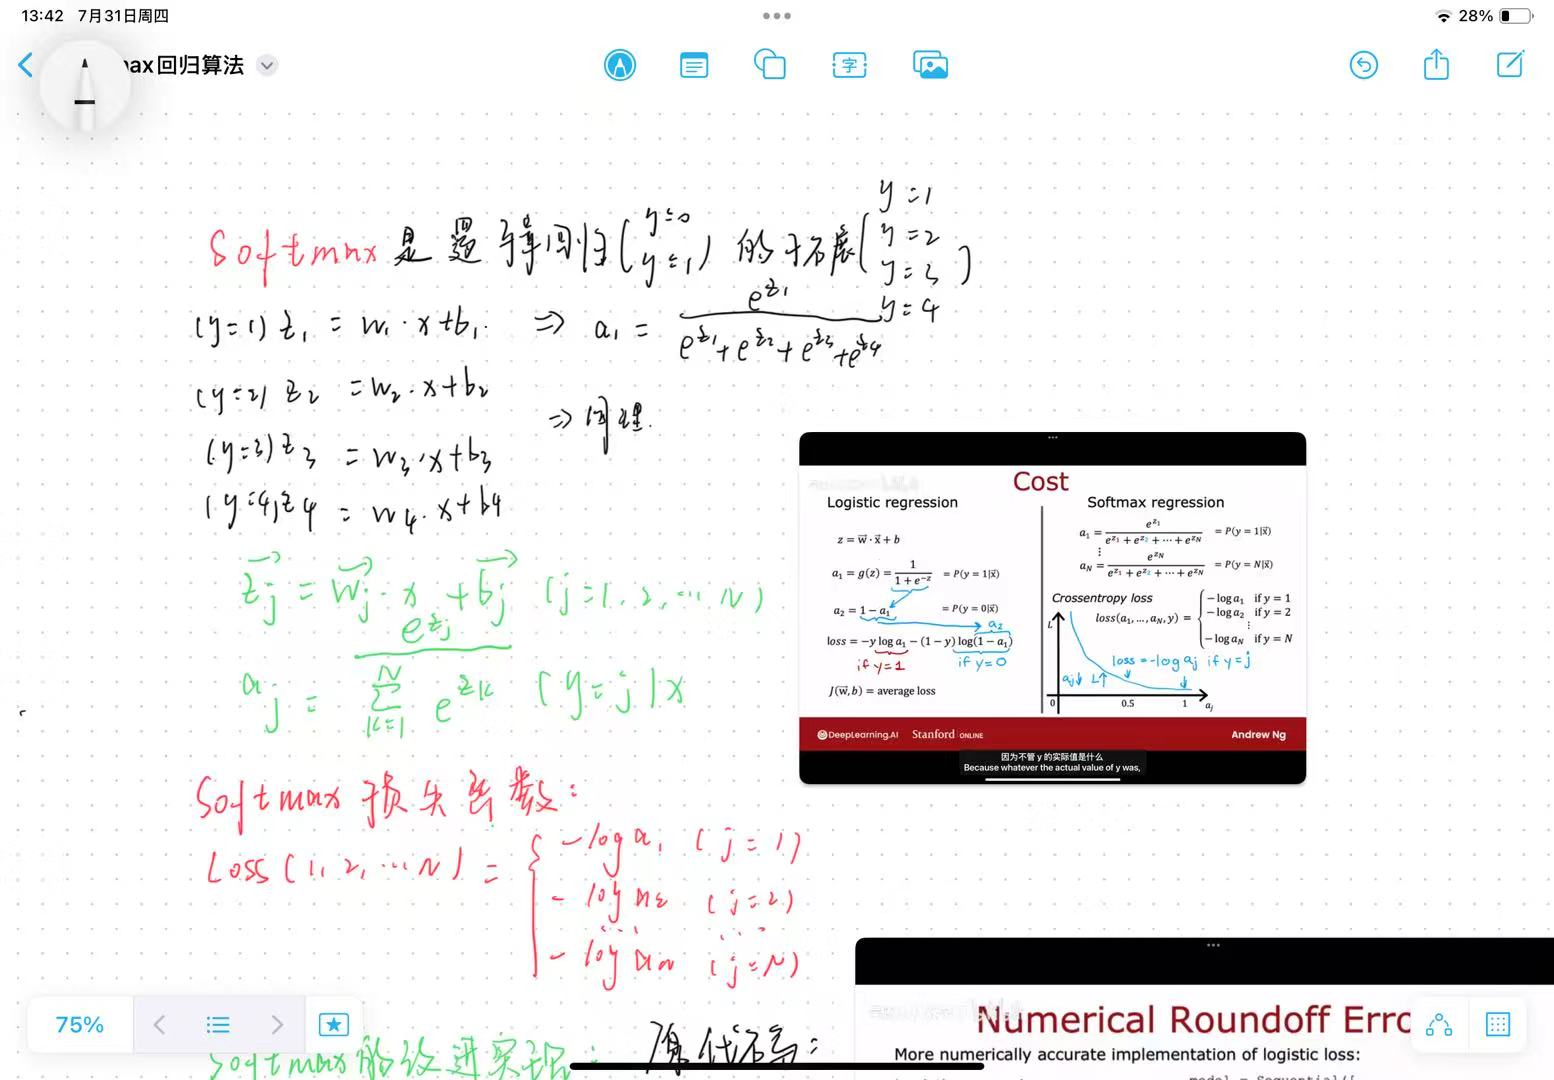 13:42 7月31日周四
28%
max回归算法
字
Softmax 是逻辑回归(y=0 y=1) 的拓展(y=1 y=2 y=3 y=4)
(y=1) z₁ = w₁·x+b₁. ⇒ a₁ = e^z₁ / (e^z₁+e^z₂+e^z₃+e^z₄)
(y=2) z₂ = w₂·x+b₂
⇒ 同理.
(y=3) z₃ = w₃·x+b₃
(y=4) z₄ = w₄·x+b₄
z⃗j = w⃗j·x + b⃗j (j=1,2,…N)
aj = e^zj / Σ_{k=1}^{N} e^zk (y=j|x
Softmax 损失函数:
Loss(1,2,…N) = { -log a₁ (j=1)
-log a₂ (j=2)
… …
-log aN (j=N)
Softmax的改进实现: 原代码:
Cost
Logistic regression
z = w⃗·x⃗ + b
a₁ = g(z) = 1 / (1 + e^-z) = P(y = 1|x⃗)
a₂ = 1 − a₁ = P(y = 0|x⃗)
a₂
loss = −y log a₁ − (1 − y) log(1 − a₁)
if y=1 if y=0
J(w⃗, b) = average loss
Softmax regression
a₁ = e^z₁ / (e^z₁ + e^z₂ + ⋯ + e^zN) = P(y = 1|x⃗)
⋮
aN = e^zN / (e^z₁ + e^z₂ + ⋯ + e^zN) = P(y = N|x⃗)
Crossentropy loss
loss(a₁, …, aN, y) = { −log a₁ if y = 1
−log a₂ if y = 2
⋮
−log aN if y = N
L
loss = -log aj if y=j
aj↓ L↑
0 0.5 1 aj
DeepLearning.AI Stanford ONLINE Andrew Ng
因为不管 y 的实际值是什么
Because whatever the actual value of y was,
Numerical Roundoff Erro
More numerically accurate implementation of logistic loss:
model = Sequential([
75%